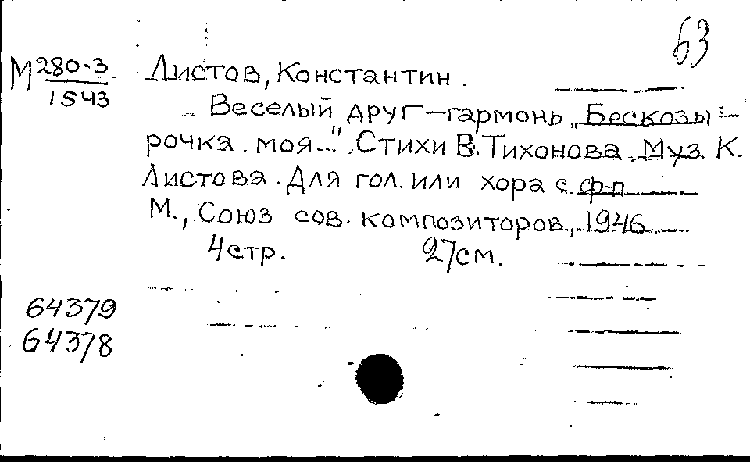 63
М 280-3 Листов, Константин.
1543
Веселый друг - гармонь „Бескозы-
рочка моя..." Стихи В. Тихонова. Муз. К.
Листова. Для гол. или хора с ф-п
М., Союз сов. композиторов, 1946
4 стр. 27 см.
64379
64378